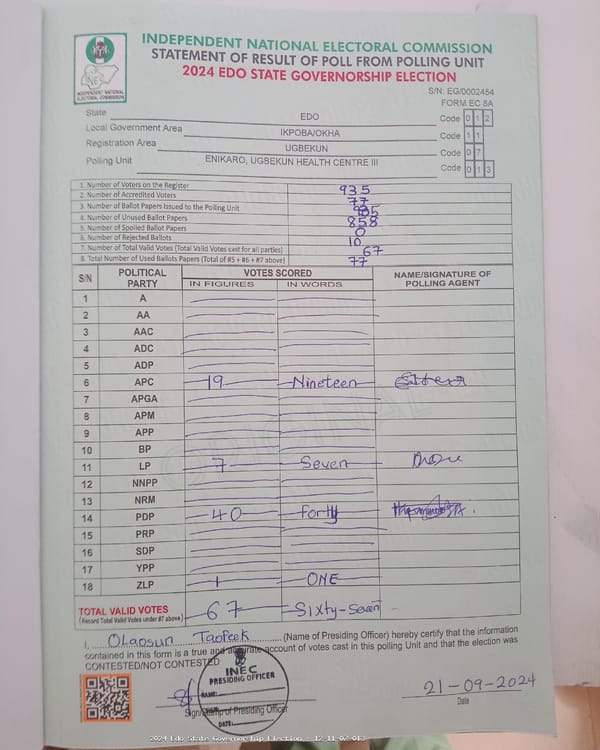 INDEPENDENT NATIONAL ELECTORAL COMMISSION
STATEMENT OF RESULT OF POLL FROM POLLING UNIT
2024 EDO STATE GOVERNORSHIP ELECTION
INEC
INDEPENDENT NATIONAL
ELECTORAL COMMISSION
S/N: EG/0002454
FORM EC 8A
State EDO Code 0 1 2
Local Government Area IKPOBA/OKHA Code 1 1
Registration Area UGBEKUN Code 0 7
Polling Unit ENIKARO, UGBEKUN HEALTH CENTRE III Code 0 1 3
1. Number of Voters on the Register 935
2. Number of Accredited Voters 77
3. Number of Ballot Papers Issued to the Polling Unit
4. Number of Unused Ballot Papers 858
5. Number of Spoiled Ballot Papers 0
6. Number of Rejected Ballots 10
7. Number of Total Valid Votes (Total Valid Votes cast for all parties) 67
8. Total Number of Used Ballots Papers (Total of #5 + #6 + #7 above) 77
S/N POLITICAL PARTY VOTES SCORED NAME/SIGNATURE OF POLLING AGENT
IN FIGURES IN WORDS
1 A
2 AA
3 AAC
4 ADC
5 ADP
6 APC 19 Nineteen
7 APGA
8 APM
9 APP
10 BP
11 LP 7 Seven
12 NNPP
13 NRM
14 PDP 40 forty
15 PRP
16 SDP
17 YPP
18 ZLP 1 ONE
TOTAL VALID VOTES 67 Sixty-Seven
(Record Total Valid Votes under #7 above)
I, Olaosun Taofeek (Name of Presiding Officer) hereby certify that the information
contained in this form is a true and accurate account of votes cast in this polling Unit and that the election was
CONTESTED/NOT CONTESTED
INEC
PRESIDING OFFICER
NAME:
SIGN:
DATE:
Sign/Stamp of Presiding Officer
21-09-2024
Date
2024 Edo State Governorship Election - 12-11-07-013